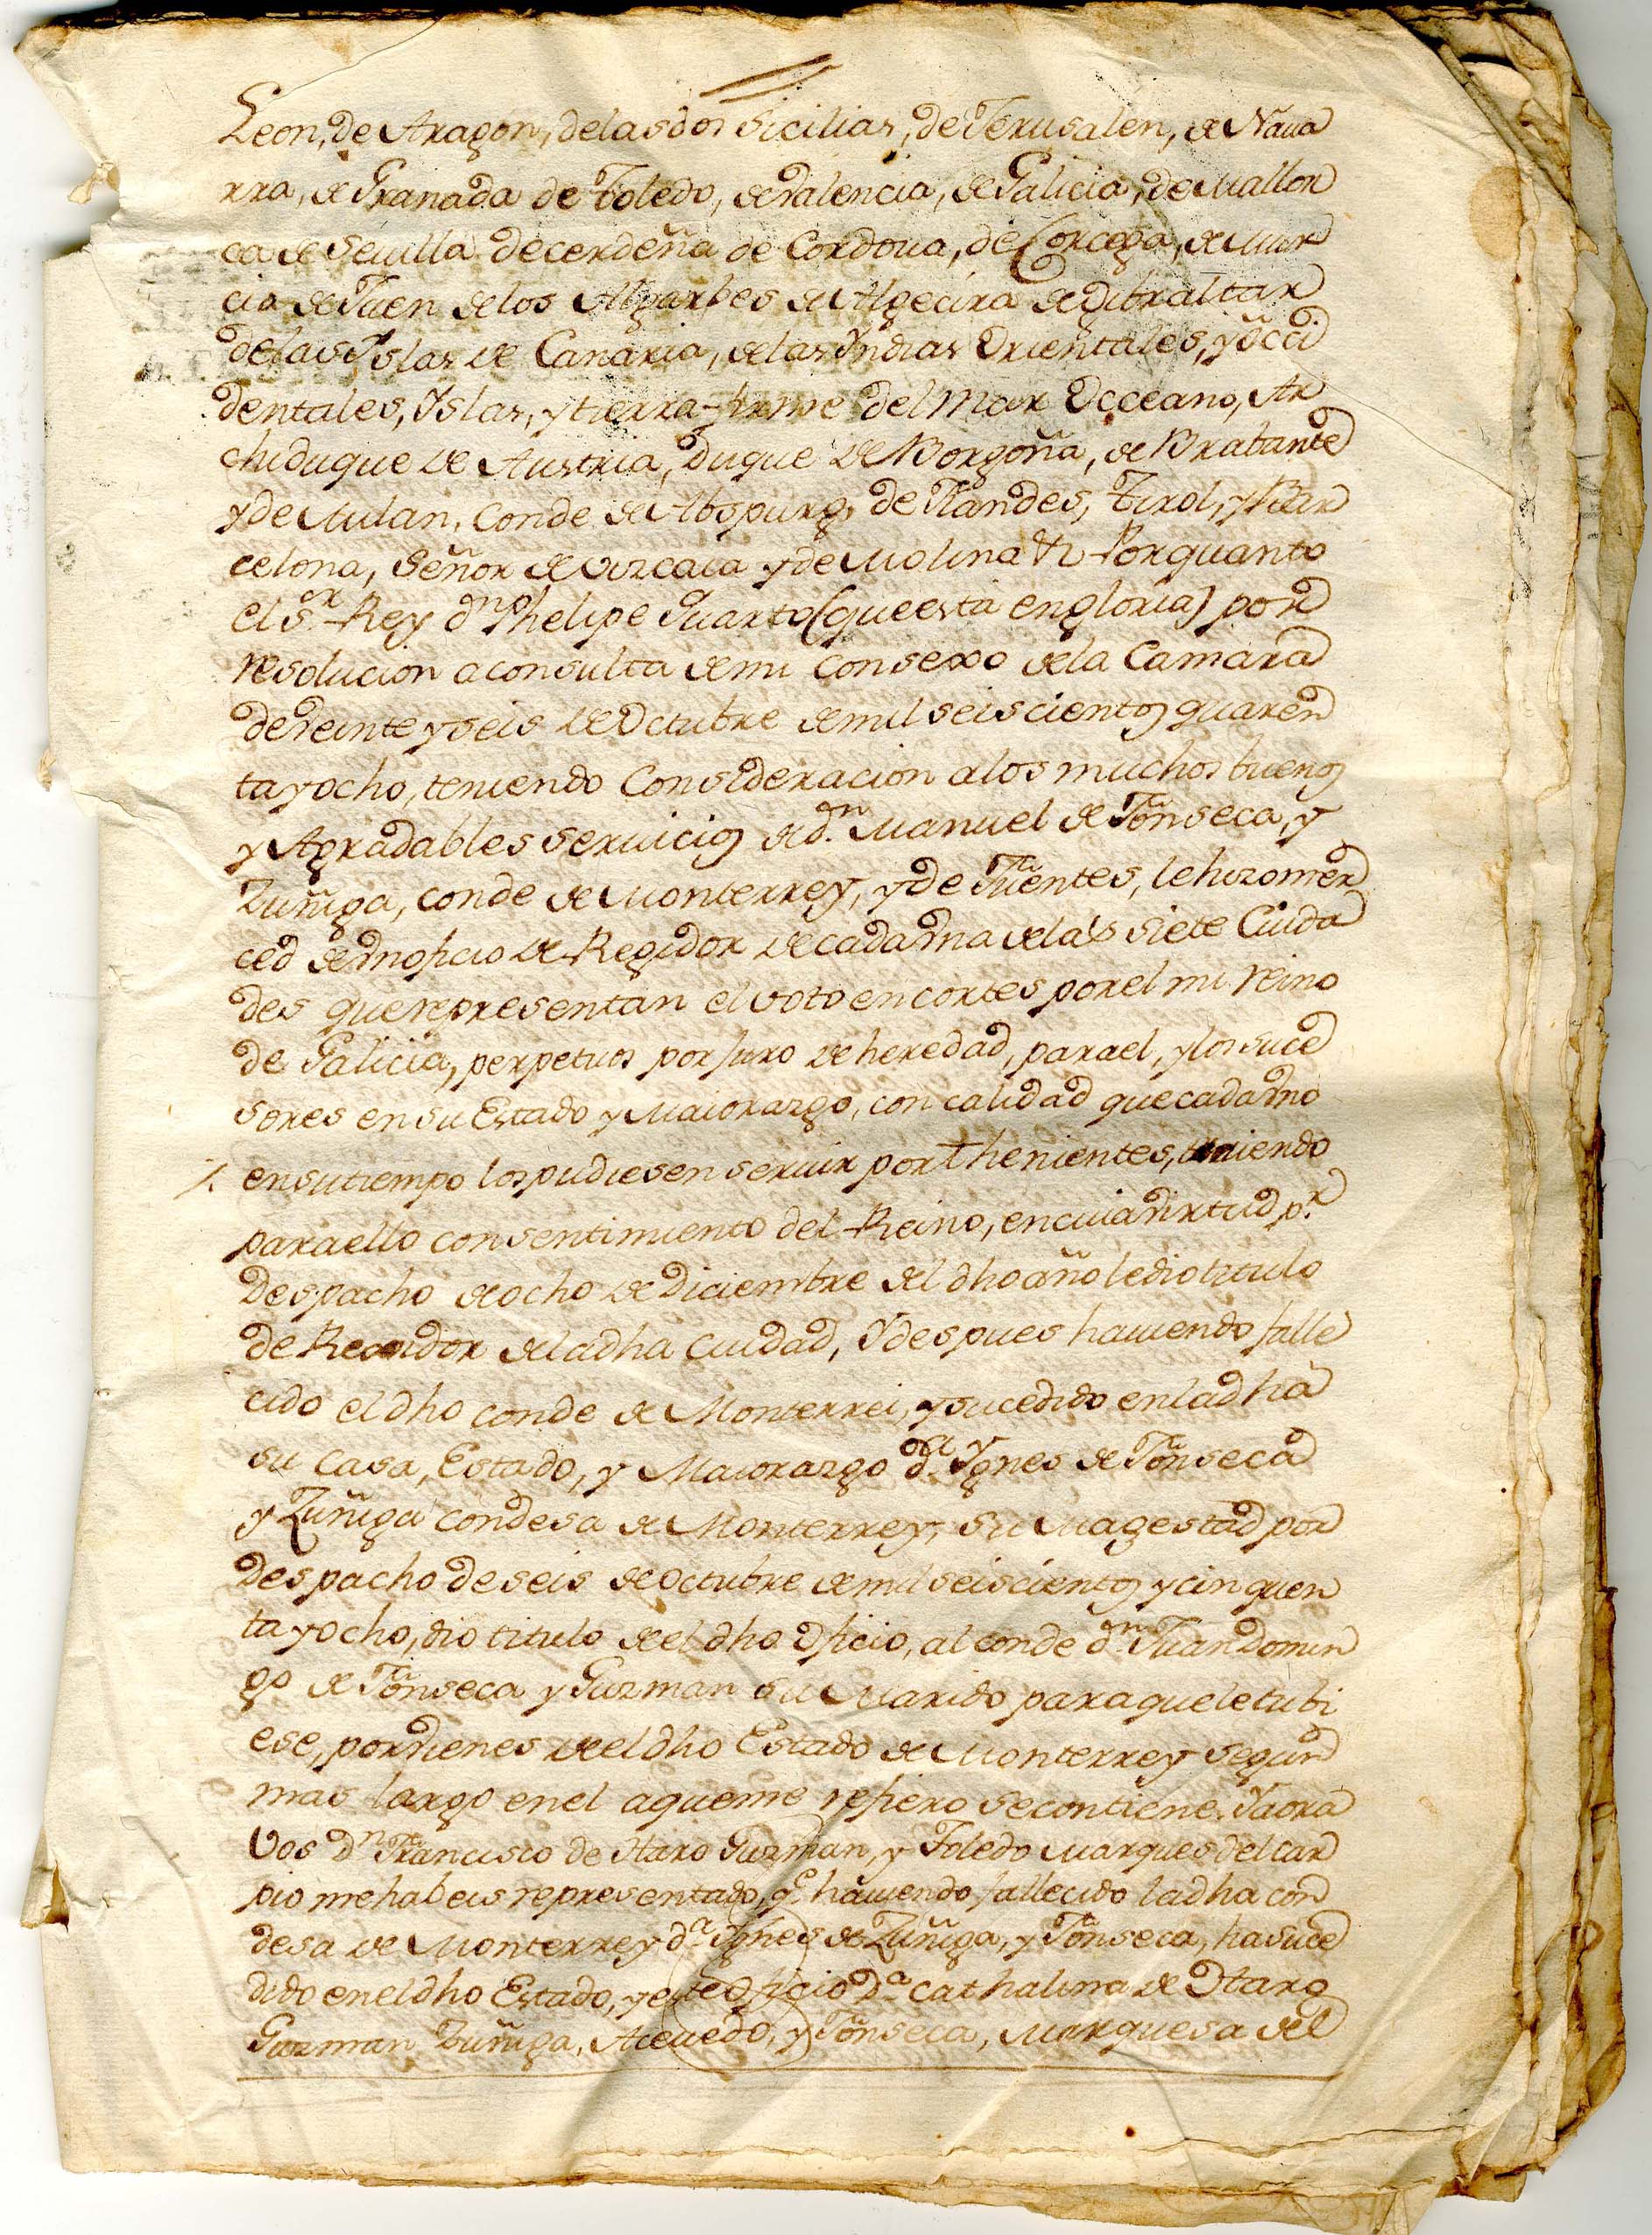 Leon, de Aragon, delasdos Sicilias, de Jerusalen, de Naua
rra, de Granada de Toledo, de Valencia, de Galicia, de Mallor
ca de Seuilla de cerdeña de Cordoua, de Corcega, de Mur
cia de Jaen de los Algarbes de Algecira de gibraltar
delas Yslas de Canaria, de las Yndias Orientales, y occi
dentales, Yslas, y tierra-firme del Mar Occeano, Ar
chiduque de Austria, Duque de Borgoña, de Brabante
y de Milan, Conde de Abspurg, de Flandes, Tirol, y Bar
celona, Señor de Vizcaia y de Molina &c Porquanto
el s.r Rey dn Phelipe Quarto (que esta en gloria) por
resolucion a consulta de mi Consexo de la Camara
de Veinte y seis de Octubre de mil seiscientos quaren
ta y ocho, teniendo Consideracion a los muchos buenos
y Agradables seruicios de d.n Manuel de Fonseca, y
Zuñiga, Conde de Monterrey, y de Fuentes, le hizo mer
ced de Vn oficio de Regidor de cada Vna de las siete Ciuda
des que representan el voto en cortes por el mi reino
de Galicia, perpetuos por juro de heredad, para el, y los suce
sores en su Estado y Maiorazgo, con calidad que cada Vno
en su tiempo los pudiesen seruir por thenientes, teniendo
para ello consentimiento del Reino, en cuia Virtud p.r
Despacho de ocho de Diciembre del dho año le dio titulo
de Regidor de la dha Ciudad, Y despues hauiendo falle
cido el dho conde de Monterrei, y sucedido en la dha
su Casa, Estado, y Maiorazgo d.a Ygnes de Fonseca
y Zuñiga Condesa de Monterrey, su Magestad por
Despacho de seis de octubre de mil seiscientos y cinquen
ta y ocho, dio titulo de el dho oficio, al conde dn Juan Domin
go de Fonseca y Guzman su Marido para que le tubi
ese, por Vienes de el dho Estado de Monterrey segun
mas largo en el a que me refiero se contiene. Y aora
Vos Dn Francisco de Haro Guzman, y Toledo Marques del Car
pio me habeis representado, q.e hauiendo fallecido la dha con
desa de Monterrey d.a Ygnes de Zuñiga, y Fonseca, ha suce
dido en el dho Estado, y este oficio D.a Cathalina de Haro
Guzman Zuñiga, Aceuedo, y Fonseca, Marquesa del